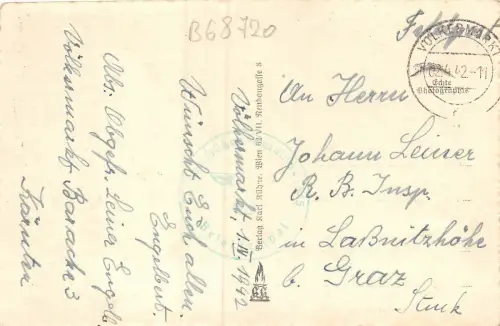 B68720
Feldpost
VÖLKERMARKT
02.4.42-11
Echte
Photographie
Völkermarkt, 1.IV 1942
Wünscht Euch allen
Engelbert.
Abs. Obgefr. Leiner Engelb.
Völkermarkt Baracke 3
Kärnten
Verlag Karl Kühne, Wien 62/VII, Neubaugasse 8
An Herrn
Johann Leiner
R. B. Insp.
in Laßnitzhöhe
b. Graz
Stmk